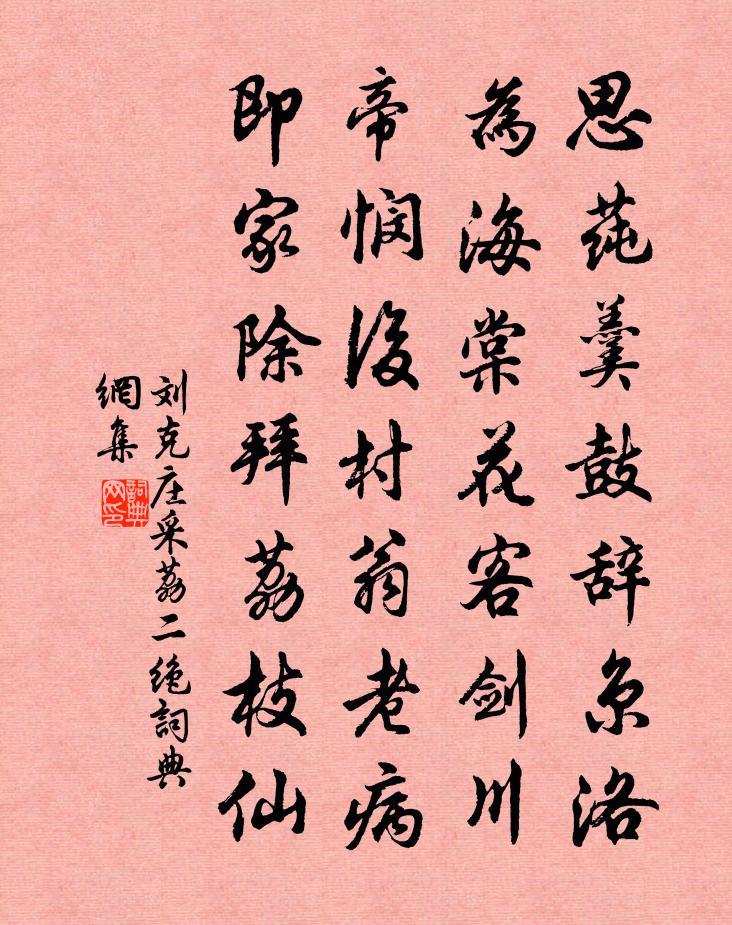 思莼羹鼓辞京洛
為海棠花客剑川
帝悯後村翁老病
即家除拜荔枝仙
刘克庄采荔二绝詞典
網集
詞典
网印